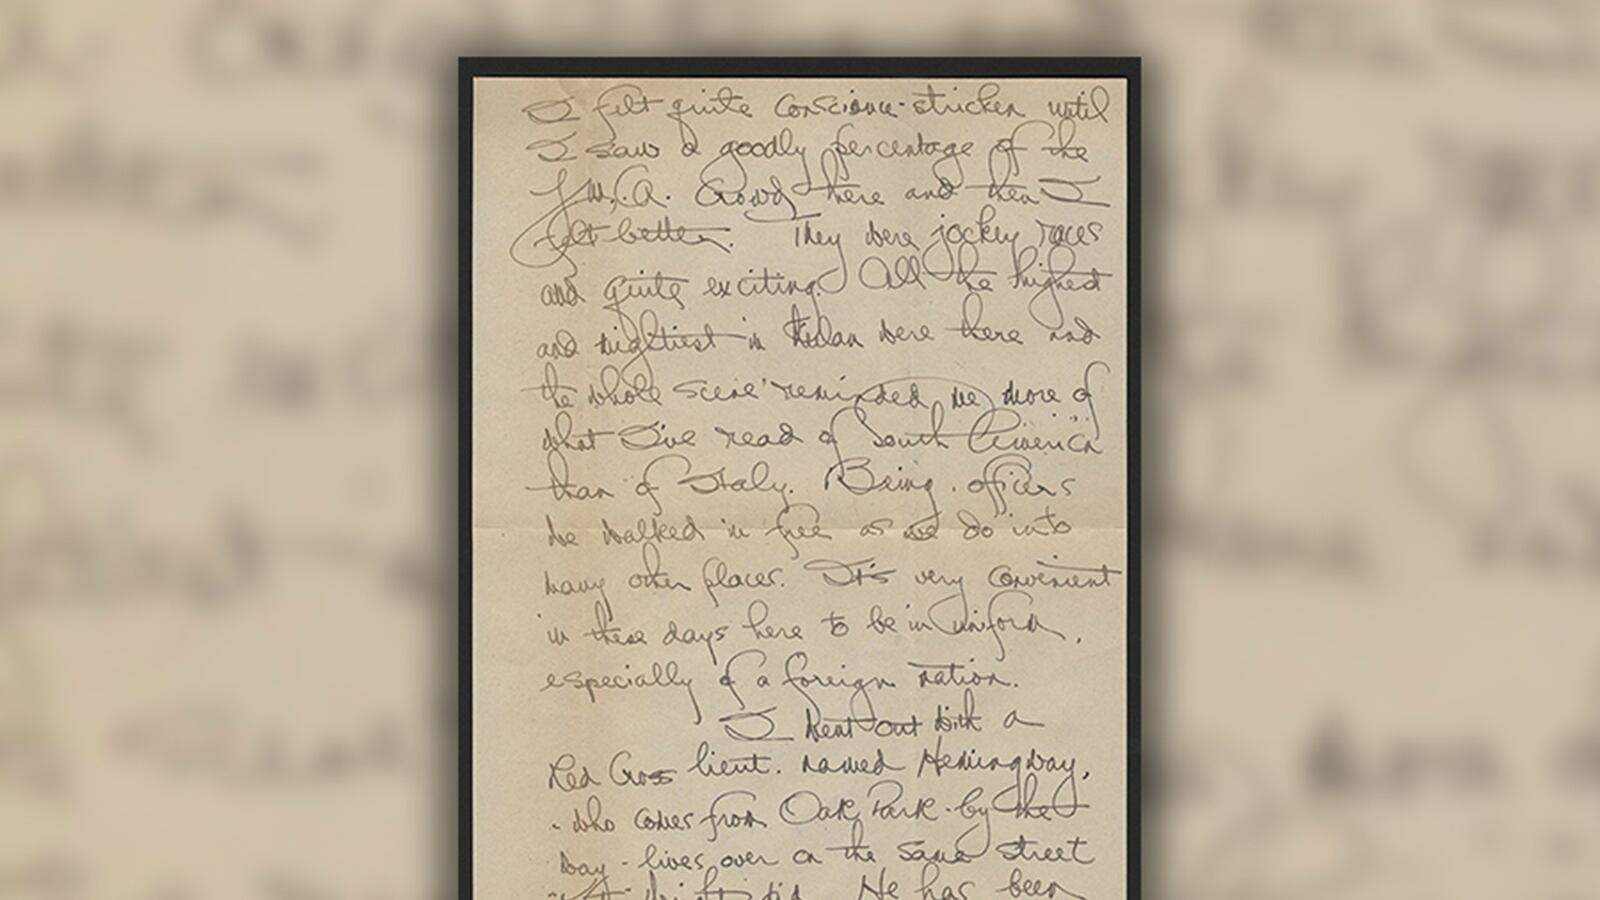 I felt quite conscience-stricken until
I saw a goodly percentage of the
Y.M.C.A. crowd there and then I
felt better. They were jockey races
and quite exciting. All the highest
and mightiest in Milan were there and
the whole scene reminded me more of
what I've read of South America
than of Italy. Being officers
we walked in free as we do into
many other places. It's very convenient
in these days here to be in uniform,
especially of a foreign nation.
I went out with a
Red Cross lieut. named Hemingway,
- who comes from Oak Park - by the
way - lives over on the same street
He has been